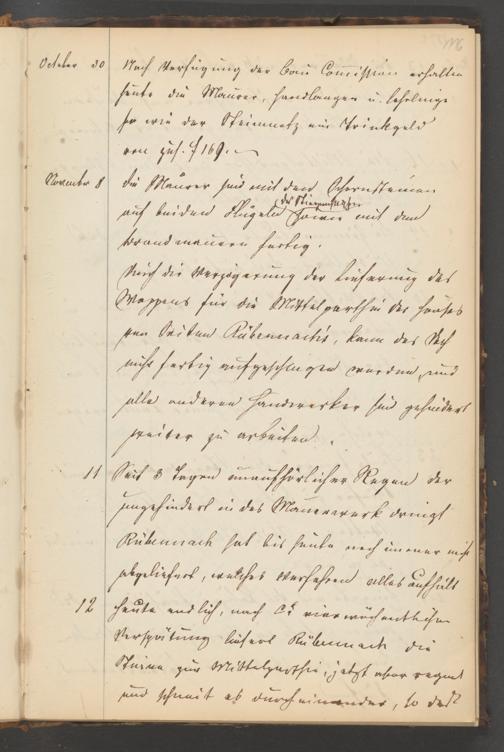 October 30 Nach Verfügung der Bau Commission erhalten
heute die Maurer, Handlanger u. Lehrlinge
so wie der Steinmetz ein Trinkgeld
von zus. f 169.
November 8 Die Maurer sind mit den Schornsteinen
auf beiden Flügeln sowie mit den
Brandmauern fertig.
Durch die Verzögerung der Lieferung des
Wappens für die Mittelparthie des Hauses
von Seiten Rübenacks, kann das Dach
nicht fertig aufgeschlagen werden, und
alle anderen Handwerker sind gehindert
weiter zu arbeiten.
11 Seit 3 Tagen unaufhörlicher Regen der
ungehindert in das Mauerwerk dringt
Rübenack hat bis heute noch immer nicht
abgeliefert, welches Verfahren alles aufhält
12 Heute endlich, nach vierwöchentlicher
Verspätung liefert Rübenack die
Steine zur Mittelparthie, jetzt aber regnet
und schneit es durcheinander, so daß